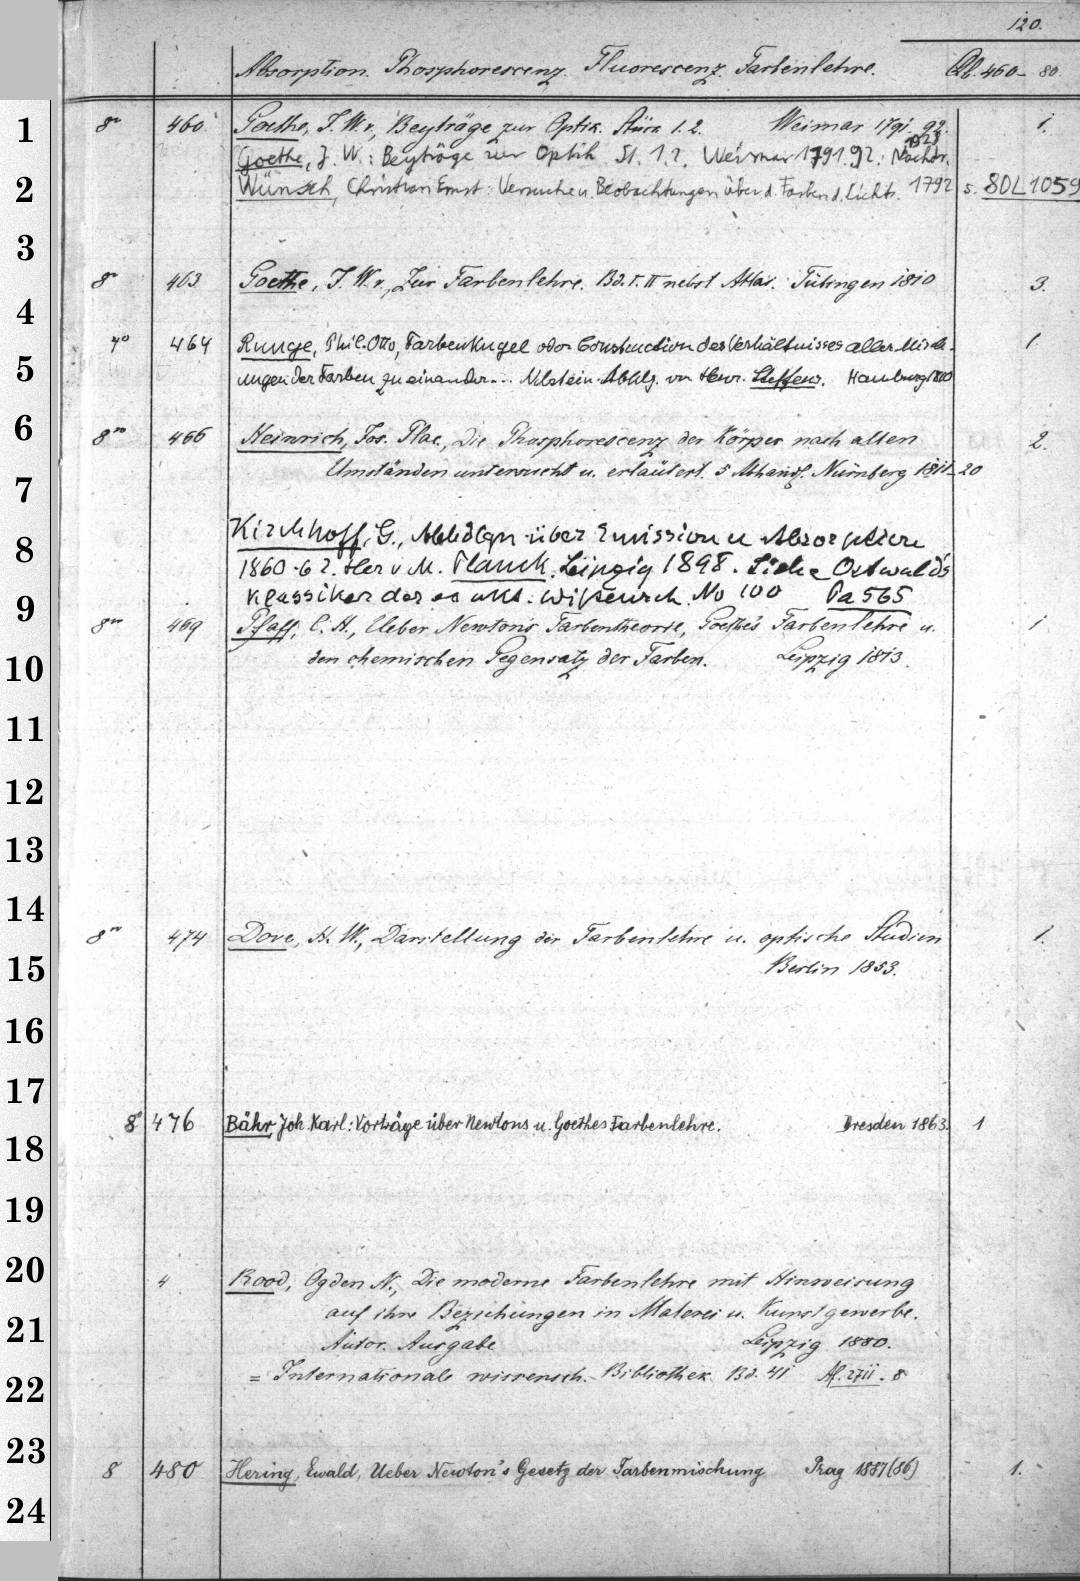 120.
Absorption. Phosphorescenz. Fluorescenz. Farbenlehre. Qb. 460–80.
8° 460 Goethe, J. W. v., Beyträge zur Optik. Stück 1. 2. Weimar 1791. 92. 1.
1923
Goethe, J. W.: Beyträge zur Optik. St. 1.2. Weimar 1791.92. Nachdr.
Wünsch, Christian Ernst: Versuche u. Beobachtungen über d. Farben d. Lichts. 1792 s. 80L1059
8° 463 Goethe, J. W. v., Zur Farbenlehre. Bd. I. II nebst Atlas. Tübingen 1810 3.
4° 464 Runge, Phil. Otto, Farben Kugel oder Construction des Verhältnisses aller Misch- 1
ungen der Farben zu einander... Nebst ein. Abhlg. von Henr. Steffens. Hamburg 1810
8° 466 Heinrich, Jos. Plac., Die Phosphorescenz der Körper nach allen 2.
Umständen untersucht u. erläutert. 5 Abhandl. Nürnberg 1811–20
Kirchhoff, G., Abhdlgn über Emission u Absorption
1860-62. Her v M. Planck. Leipzig 1898. Siehe Ostwald's
Klassiker der exakt. Wissensch. No 100 Pa 565
8° 469 Pfaff, C. H., Ueber Newton's Farbentheorie, Goethe's Farbenlehre u. 1
den chemischen Gegensatz der Farben. Leipzig 1813.
8° 474 Dove, H. W., Darstellung der Farbenlehre u. optische Studien 1.
Berlin 1853.
8° 476 Bähr, Joh. Karl: Vorträge über Newtons u. Goethes Farbenlehre. Dresden 1863. 1
4 Rood, Ogden N., Die moderne Farbenlehre mit Hinweisung
auf ihre Beziehungen in Malerei u. Kunstgewerbe.
Autor. Ausgabe Leipzig 1880.
= Internationale wissensch. Bibliothek. Bd. 41 Af. 2711. 8
8 480 Hering, Ewald, Ueber Newton's Gesetz der Farbenmischung Prag 1887(86) 1.
1
2
3
4
5
6
7
8
9
10
11
12
13
14
15
16
17
18
19
20
21
22
23
24